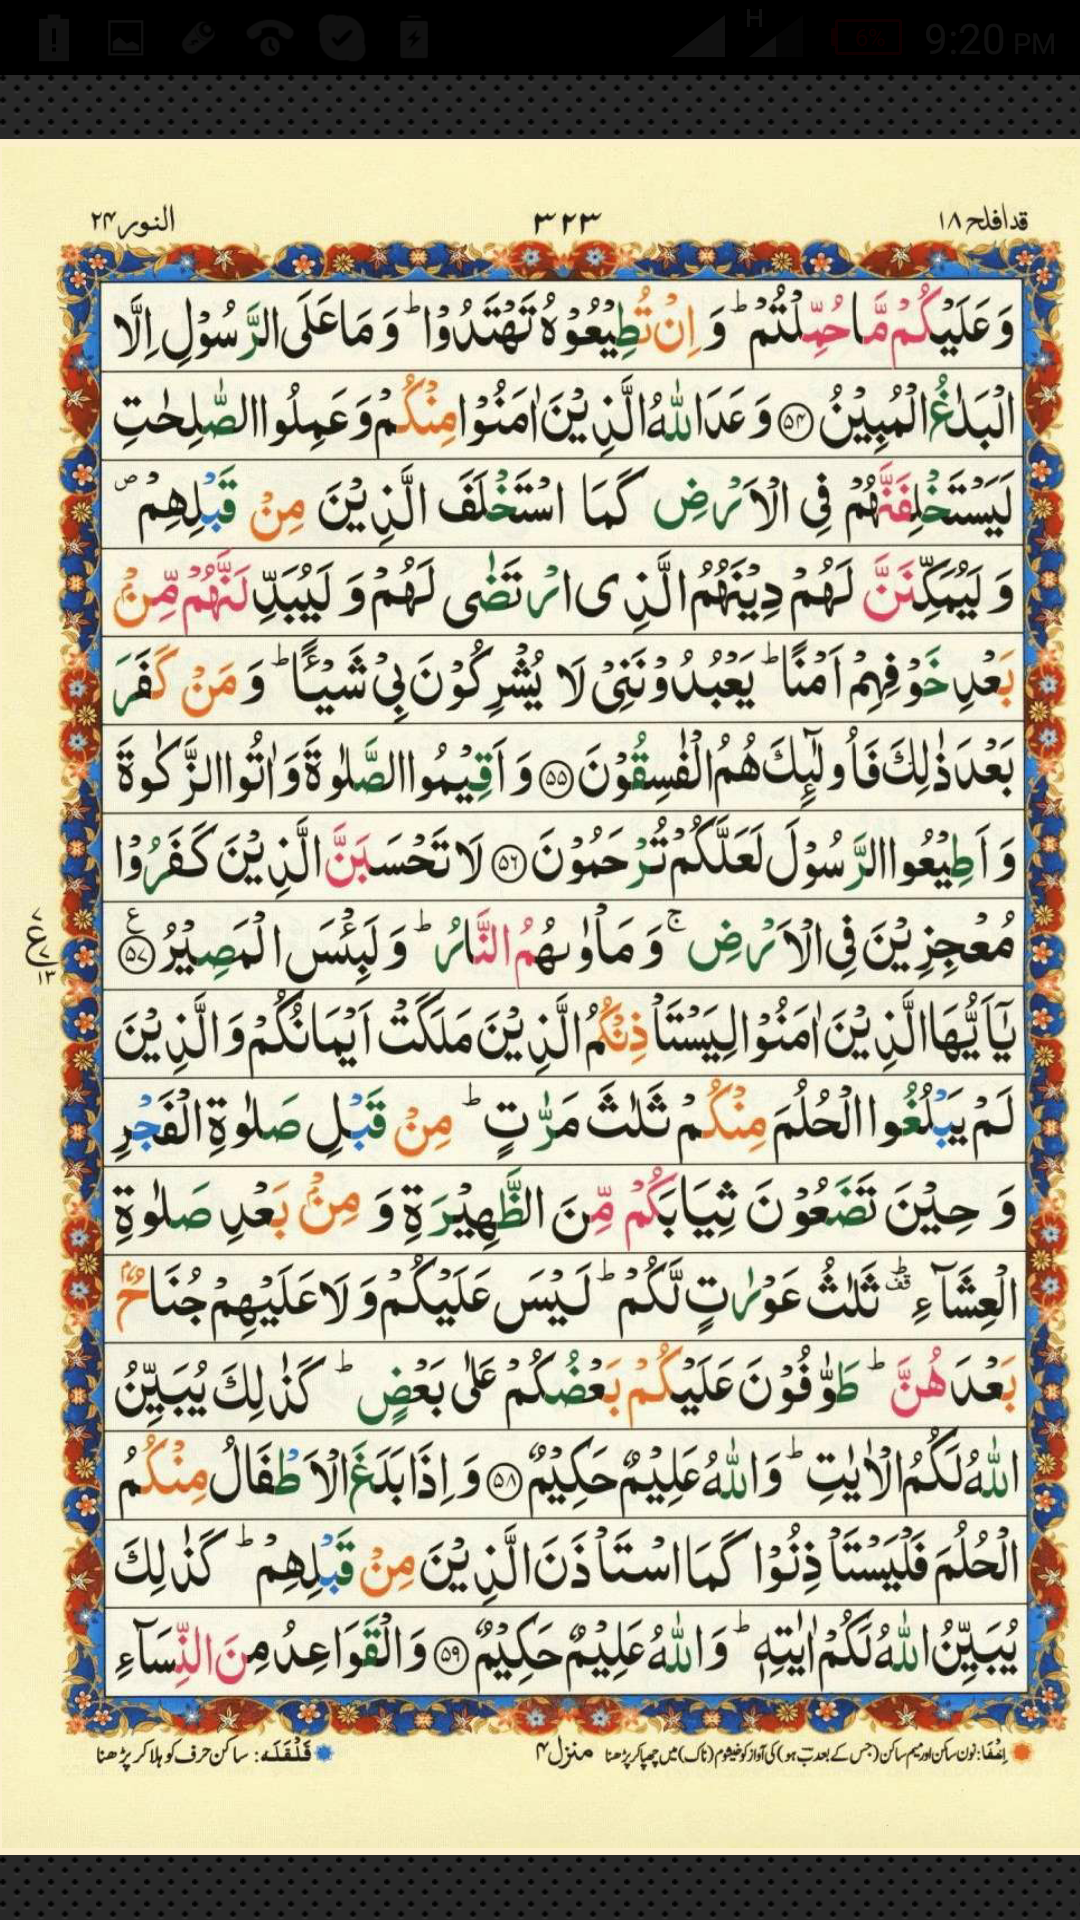 9:20 PM
H
6%
قدافلح ١٨
٣٢٣
النور ٢٤
وَعَلَيْكُمْ مَّا حُمِّلْتُمْ ؕ وَ اِنْ تُطِيْعُوْهُ تَهْتَدُوْا ؕ وَ مَا عَلَى الرَّسُوْلِ اِلَّا
الْبَلٰغُ الْمُبِيْنُ ﴿۵۴﴾ وَعَدَ اللّٰهُ الَّذِيْنَ اٰمَنُوْا مِنْكُمْ وَ عَمِلُوا الصّٰلِحٰتِ
لَيَسْتَخْلِفَنَّهُمْ فِى الْاَرْضِ كَمَا اسْتَخْلَفَ الَّذِيْنَ مِنْ قَبْلِهِمْ ۪
وَ لَيُمَكِّنَنَّ لَهُمْ دِيْنَهُمُ الَّذِى ارْتَضٰى لَهُمْ وَ لَيُبَدِّلَنَّهُمْ مِّنْۢ
بَعْدِ خَوْفِهِمْ اَمْنًا ؕ يَعْبُدُوْنَنِىْ لَا يُشْرِكُوْنَ بِىْ شَيْـًٔا ؕ وَ مَنْ كَفَرَ
بَعْدَ ذٰلِكَ فَاُولٰٓئِكَ هُمُ الْفٰسِقُوْنَ ﴿۵۵﴾ وَ اَقِيْمُوا الصَّلٰوةَ وَ اٰتُوا الزَّكٰوةَ
وَ اَطِيْعُوا الرَّسُوْلَ لَعَلَّكُمْ تُرْحَمُوْنَ ﴿۵۶﴾ لَا تَحْسَبَنَّ الَّذِيْنَ كَفَرُوْا
مُعْجِزِيْنَ فِى الْاَرْضِ ۚ وَ مَاْوٰىهُمُ النَّارُ ؕ وَ لَبِئْسَ الْمَصِيْرُ ﴿۵۷﴾ ع
٧ ع ٧ ١٣
يٰۤاَيُّهَا الَّذِيْنَ اٰمَنُوْا لِيَسْتَاْذِنْكُمُ الَّذِيْنَ مَلَكَتْ اَيْمَانُكُمْ وَ الَّذِيْنَ
لَمْ يَبْلُغُوا الْحُلُمَ مِنْكُمْ ثَلٰثَ مَرّٰتٍ ؕ مِنْ قَبْلِ صَلٰوةِ الْفَجْرِ
وَ حِيْنَ تَضَعُوْنَ ثِيَابَكُمْ مِّنَ الظَّهِيْرَةِ وَ مِنْۢ بَعْدِ صَلٰوةِ
الْعِشَآءِ ؕقف ثَلٰثُ عَوْرٰتٍ لَّكُمْ ؕ لَيْسَ عَلَيْكُمْ وَ لَا عَلَيْهِمْ جُنَاحٌۢ
بَعْدَهُنَّ ؕ طَوّٰفُوْنَ عَلَيْكُمْ بَعْضُكُمْ عَلٰى بَعْضٍ ؕ كَذٰلِكَ يُبَيِّنُ
اللّٰهُ لَكُمُ الْاٰيٰتِ ؕ وَ اللّٰهُ عَلِيْمٌ حَكِيْمٌ ﴿۵۸﴾ وَ اِذَا بَلَغَ الْاَطْفَالُ مِنْكُمُ
الْحُلُمَ فَلْيَسْتَاْذِنُوْا كَمَا اسْتَاْذَنَ الَّذِيْنَ مِنْ قَبْلِهِمْ ؕ كَذٰلِكَ
يُبَيِّنُ اللّٰهُ لَكُمْ اٰيٰتِهٖ ؕ وَ اللّٰهُ عَلِيْمٌ حَكِيْمٌ ﴿۵۹﴾ وَ الْقَوَاعِدُ مِنَ النِّسَآءِ
اِخْفَا: نون ساکن اور میم ساکن (جس کے بعد ب ہو) کی آواز کو خیشوم (ناک) میں چھپا کر پڑھنا منزل ۴ قَلْقَلَه: ساکن حرف کو ہلا کر پڑھنا